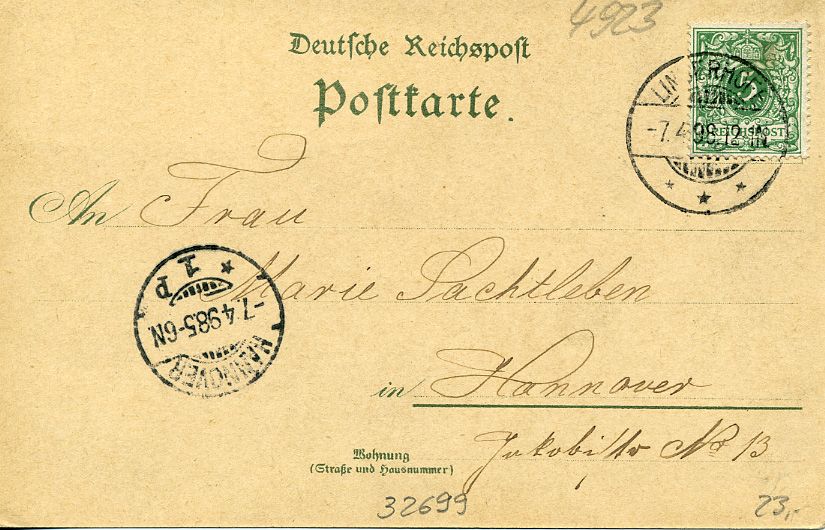 4923
Deutsche Reichspost
Postkarte.
-7.4.98.12-1N.
REICHSPOST
An Frau
Marie Sachtleben
in Hannover
Jakobistr No 13
Wohnung
(Straße und Hausnummer)
HANNOVER
-7.4.98.5-6N.
* 1 P
32699
23,-